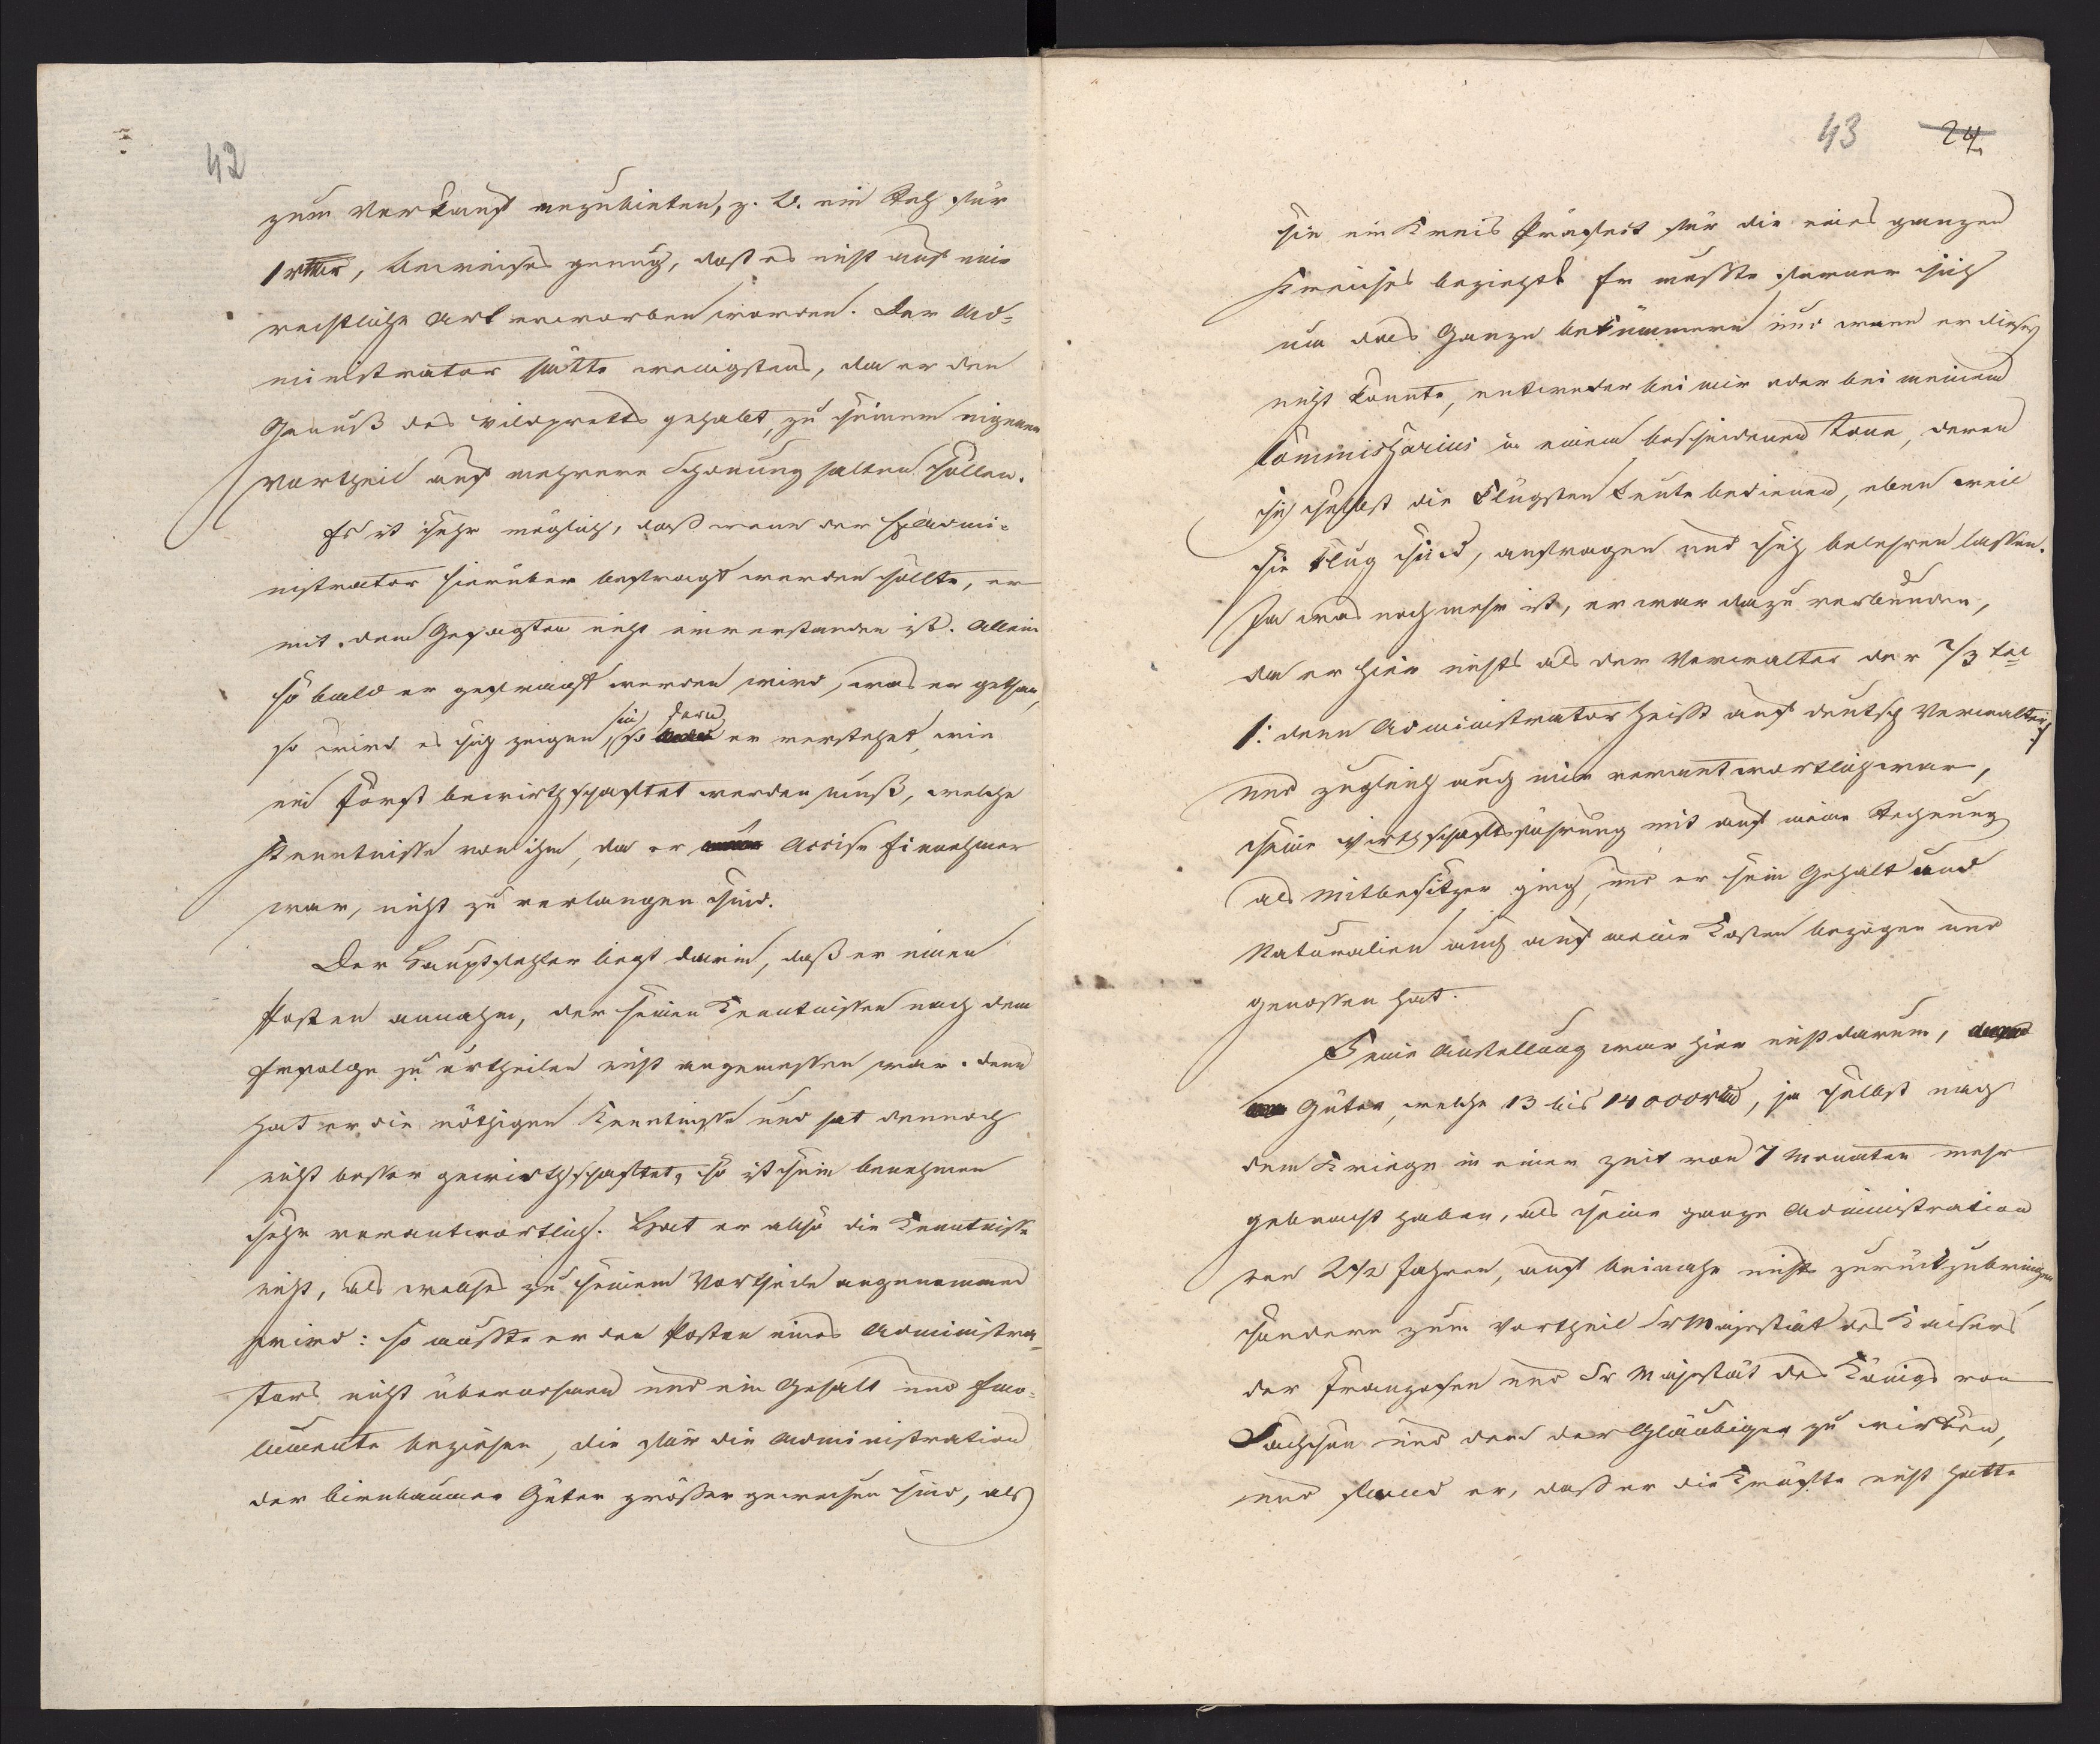 42
zum Verkauf anzubieten, z. B. ein Reh für
1 rthlr, Beweises genug, daß es nicht auf eine
rechtliche Art erworben worden. Der Ad-
ministrator hätte wenigstens, da er den
Genuß des Wildpretts gehabt, zu seinem eigenen
Vortheil auf mehrere Schonung halten sollen.
Es ist sehr möglich, daß wenn der Exadmi-
nistrator hierüber befragt werden sollte, er
mit dem Gesagten nicht einverstanden ist. Allein
so bald er gefragt werden wird, was er gethan,
so wird es sich zeigen, in so fern er verstehet, wie
ein Forst bewirthschaftet werden muß, welche
Kenntnisse von ihm, da er Accise Einnehmer
war, nicht zu verlangen sind.
Der Hauptfehler liegt darin, daß er einen
Posten annahm, der seinen Kenntnissen nach dem
Erfolge zu urtheilen nicht angemessen war. Denn
hat er die nöthigen Kenntnisse und hat dennoch
nicht besser gewirthschaftet, so ist sein benehmen
sehr verantwortlich. Hat er also die Kenntnisse
nicht, als welches zu seinem Vortheile angenommen
wird: so mußte er den Posten eines Administra-
tors nicht übernehmen und ein Gehalt und Emo-
lumente beziehen, die für die Administration
der Birnbaumer Güter größer gewesen sind, als
43 24
sie ein Kreis Präfect für die eines ganzen
Kreises beziehet. Er mußte ferner sich
um das Ganze bekümmern und wenn er dieses
nicht konnte, entweder bei mir oder bei meinem
Commissarius in einem bescheidenen Tone, deren
sich selbst die klügsten Leute bedienen, eben weil
sie klug sind, anfragen und sich belehren lassen.
Ja was noch mehr ist, er war dazu verbunden,
da er hier nichts als der Verwalter der 2/3 tel
/: denn Administrator heißt auf deutsch Verwalter :/
und zugleich auch mir verantwortlich war,
seine Wirthschaftsführung mit auf meine Rechnung
als Mitbesitzer ging, und er sein Gehalt und
Naturalien auch auf meine Kosten bezogen und
genossen hat.
Seine Anstellung war hier nicht darum,
Güter, welche 13 bis 14000 rthlr, ja selbst nach
dem Kriege in einer Zeit von 7 Monaten mehr
gebracht haben, als seine ganze Administration
von 2 1/2 Jahren, auf beinahe nichts zurückzubringen,
sondern zum Vortheil Sr Majestät des Kaisers
der Franzosen und Sr Majestät des Königs von
Sachsen und dem der Gläubiger zu wirken,
und fand er, daß er die Kräfte nicht hatte